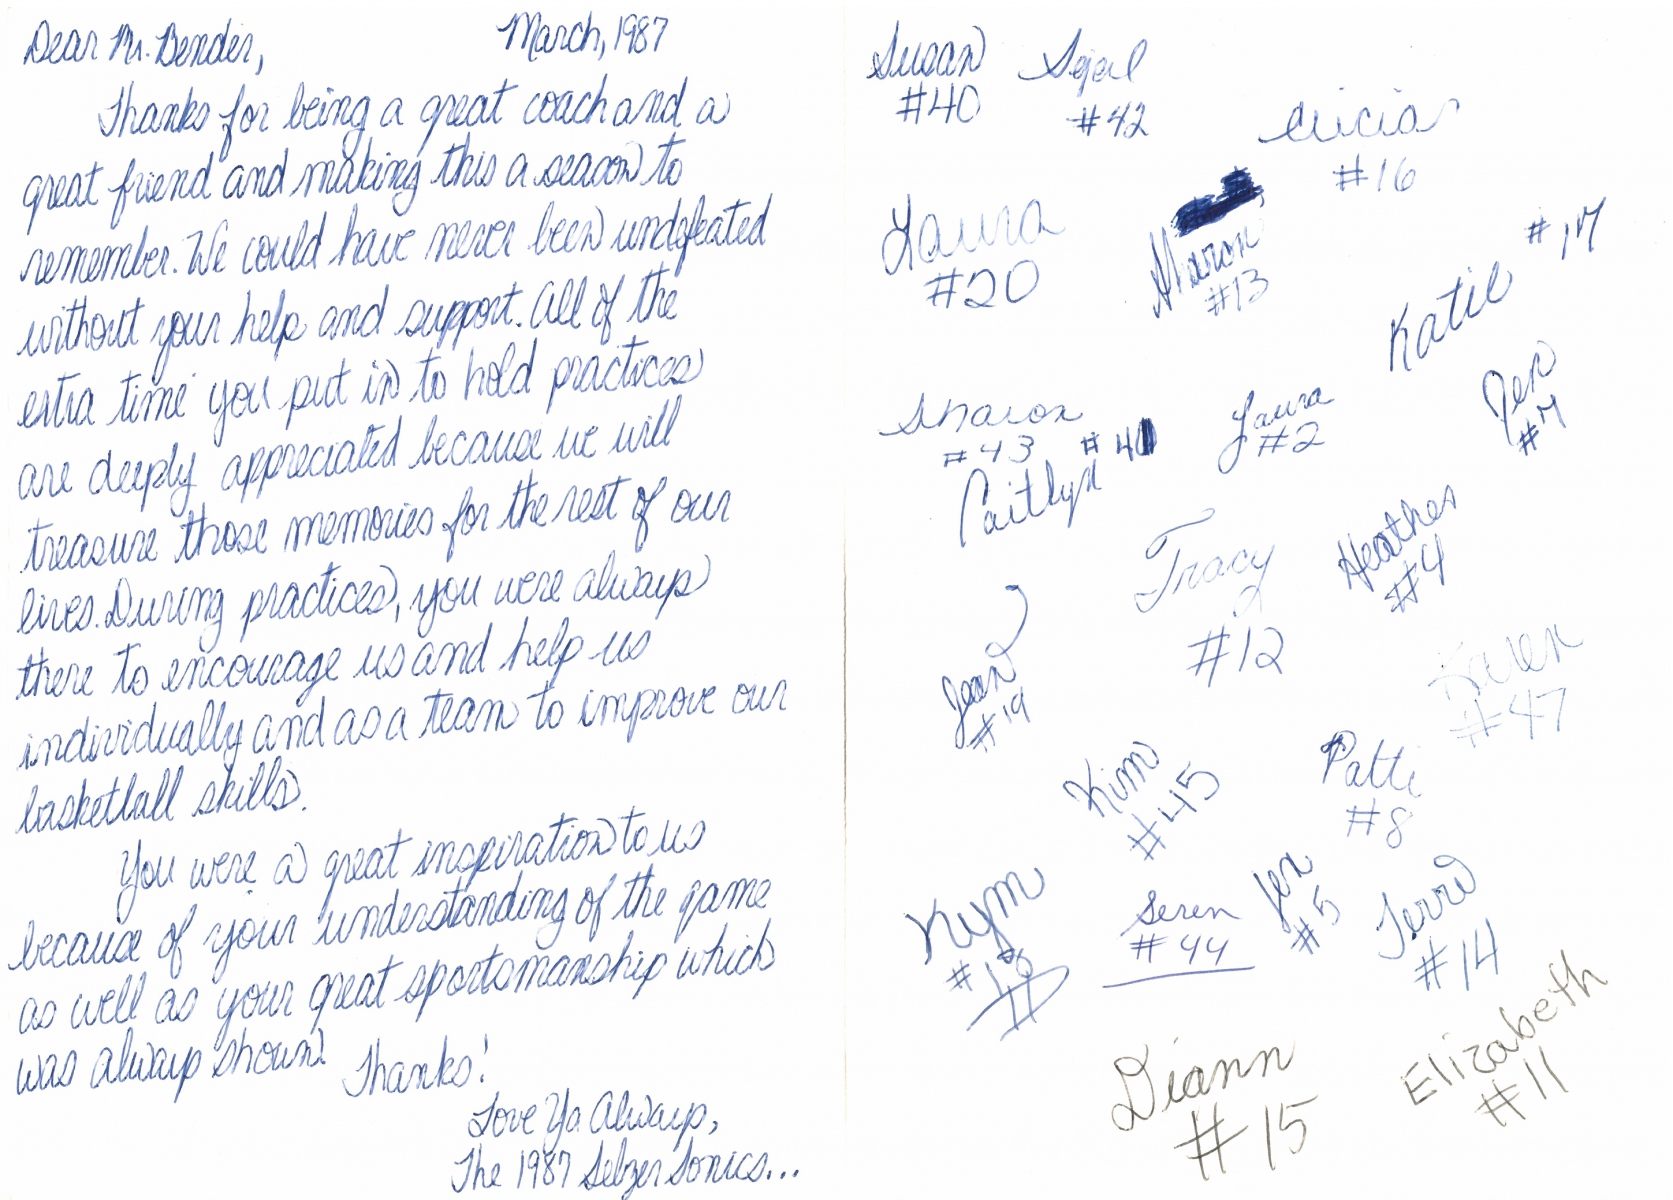 Dear Mr. Bender,
March, 1987
Thanks for being a great coach and a
great friend and making this a season to
remember. We could have never been undefeated
without your help and support. All of the
extra time you put in to hold practices
are deeply appreciated because we will
treasure those memories for the rest of our
lives. During practices, you were always
there to encourage us and help us
individually and as a team to improve our
basketball skills.
You were a great inspiration to us
because of your understanding of the game
as well as your great sportsmanship which
was always shown! Thanks!
Love Ya Always,
The 1987 Selzer Sonics...
Susan
#40
Sejal
#42
Alicia
#16
Laura
#20
Sharon
#13
Katie #17
Jen
#7
Sharon
#43
Caitlyn #41
Laura
#2
Tracy
#12
Heather
#4
Jean
#19
Karen
#47
Kim
#45
Patti
#8
Kym
#18
Seren
#44
Jen
#5
Terri
#14
Diann
#15
Elizabeth
#11